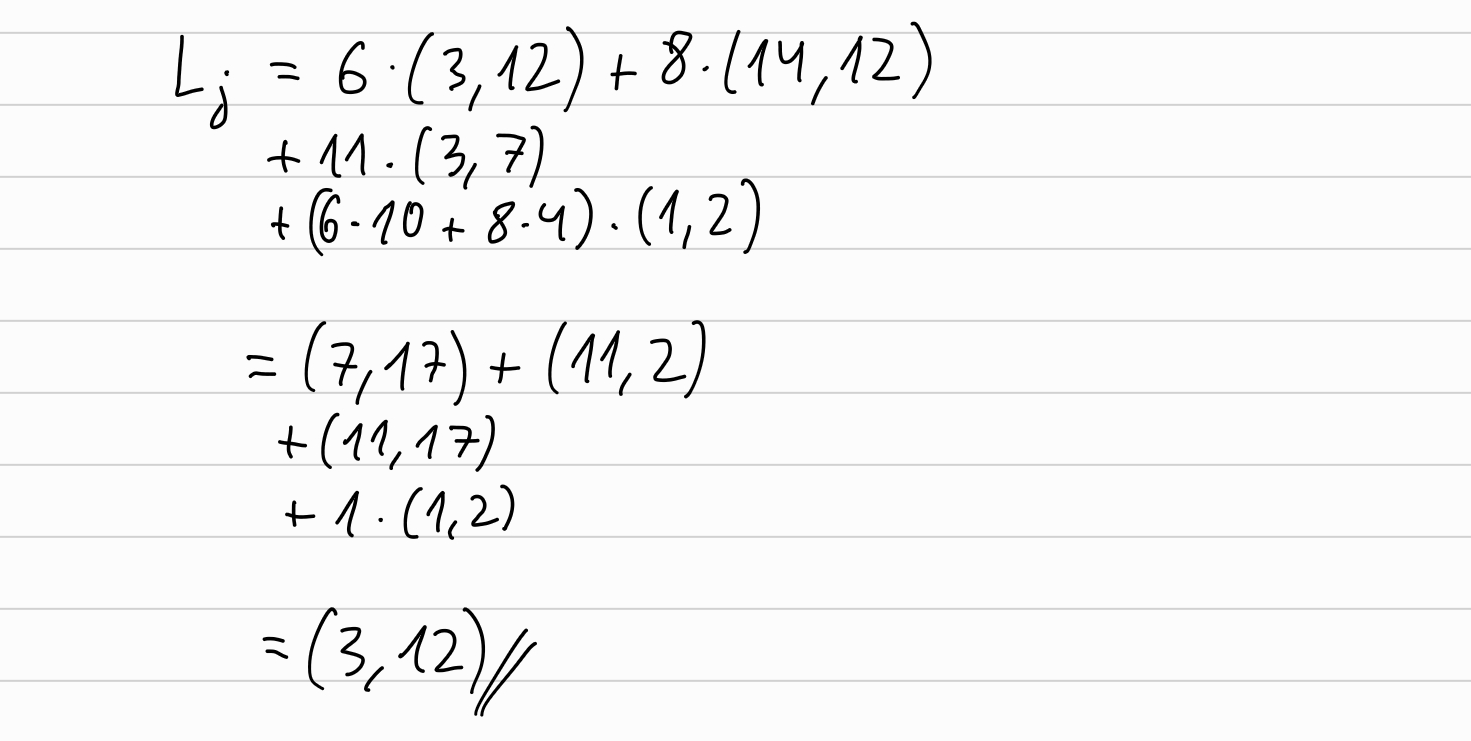 Lj = 6·(3,12) + 8·(14,12)
+ 11·(3,7)
+ (6·10 + 8·4)·(1,2)
= (7,17) + (11,2)
+ (11,17)
+ 1·(1,2)
= (3,12)//